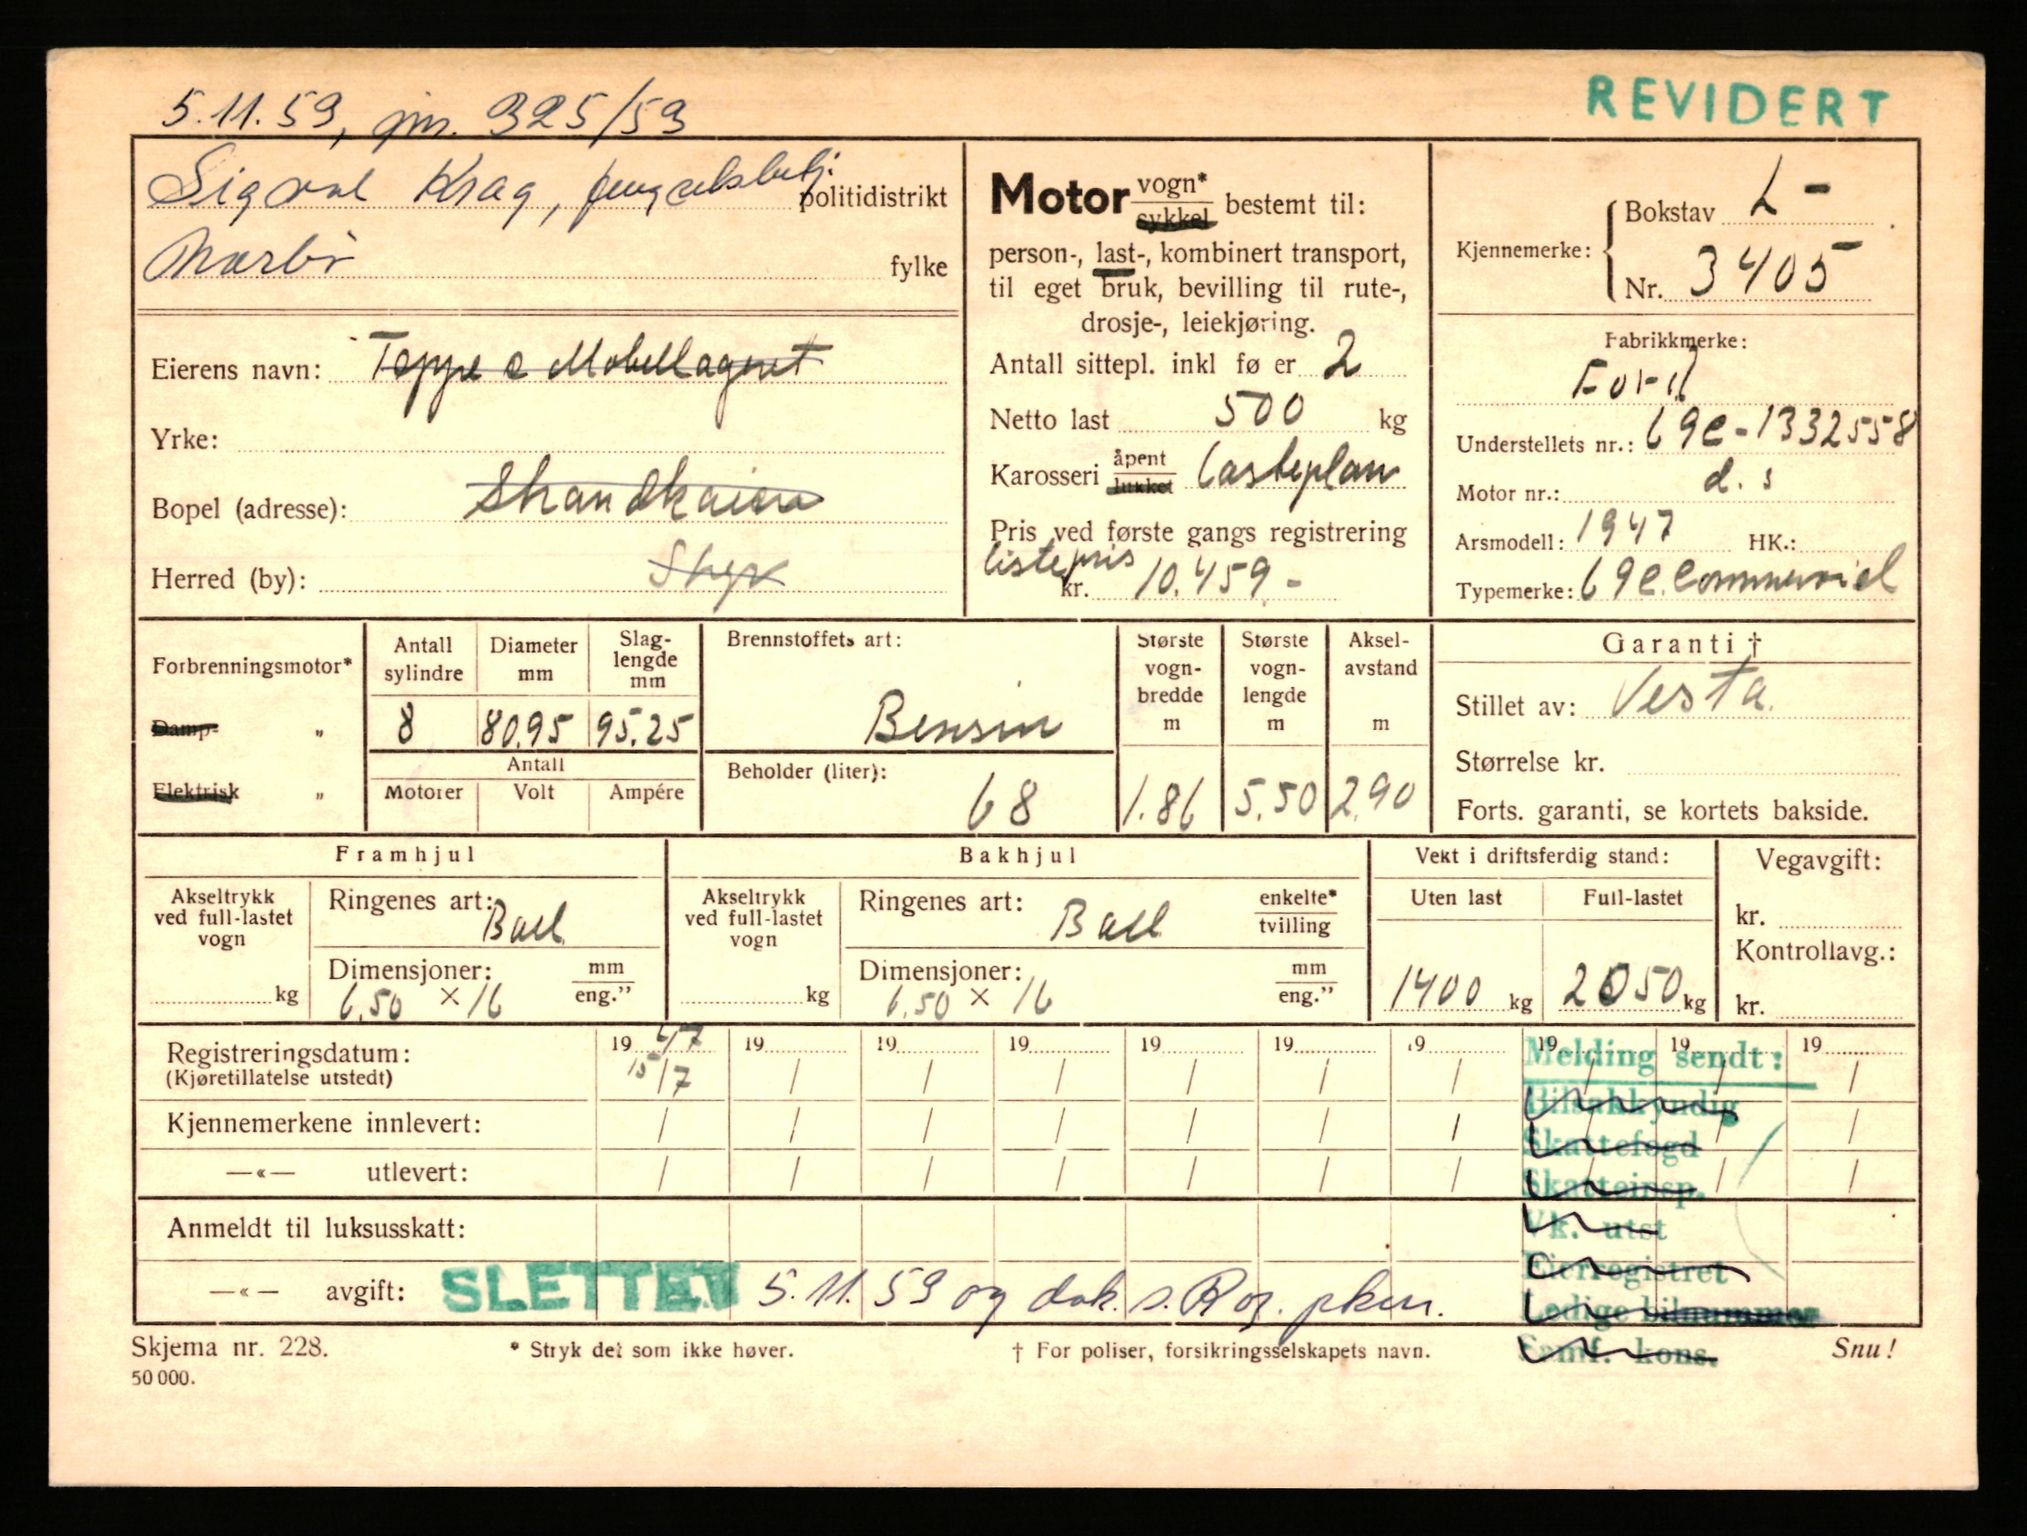 5.11.59, jnr. 325/59
REVIDERT
Sigval Krag, fengselsbetj. politidistrikt
Nærbø fylke
Eierens navn: Teppe & Møbellageret
Yrke:
Bopel (adresse): Strandkaien
Herred (by): Stvgr
Motor vogn* sykkel bestemt til:
person-, last-, kombinert transport,
til eget bruk, bevilling til rute-,
drosje-, leiekjøring.
Antall sittepl. inkl fø er 2
Netto last 500 kg
Karosseri åpent lukket Lasteplan
Pris ved første gangs registrering
listepris kr. 10.459 -
Kjennemerke: Bokstav L -
Nr. 3405
Fabrikkmerke:
Ford
Understellets nr.: 69C-1332558
Motor nr.: d. s
Arsmodell: 1947 HK.:
Typemerke: 69C.Commercial
Forbrenningsmotor*
Damp- „
Elektrisk „
Antall sylindre
8
Diameter mm
80.95
Slag-
lengde
mm
95.25
Antall
Motorer Volt Ampére
Brennstoffets art:
Bensin
Beholder (liter):
68
Største
vogn-
bredde
m
1.86
Største
vogn-
lengde
m
5.50
Aksel-
avstand
m
2.90
Garanti †
Stillet av: Vesta.
Størrelse kr.
Forts. garanti, se kortets bakside.
Framhjul
Akseltrykk
ved full-lastet
vogn
kg
Ringenes art: Ball
Dimensjoner: mm eng."
6.50 × 16
Bakhjul
Akseltrykk
ved full-lastet
vogn
kg
Ringenes art: Ball enkelte* tvilling
Dimensjoner: mm eng."
6.50 × 16
Vekt i driftsferdig stand:
Uten last Full-lastet
1400 kg 2050 kg
Vegavgift:
kr.
Kontrollavg.:
kr.
Registreringsdatum: 1947 19 19 19 19 19 19 19 19 19
(Kjøretillatelse utstedt) 15/7 / / / / / / / / /
Kjennemerkene innlevert: / / / / / / / / / /
—«— utlevert: / / / / / / / / / /
Anmeldt til luksusskatt:
—«— avgift: SLETTET 5.11.59 og dok. s. Rog. pkm.
Melding sendt:
Bilsakkyndig
Skattefogd
Skatteinsp.
Vk. utst
Eierregistret
Ledige bilnummer
Samf. kons.
Skjema nr. 228.
50 000.
* Stryk det som ikke høver.
† For poliser, forsikringsselskapets navn.
Snu!